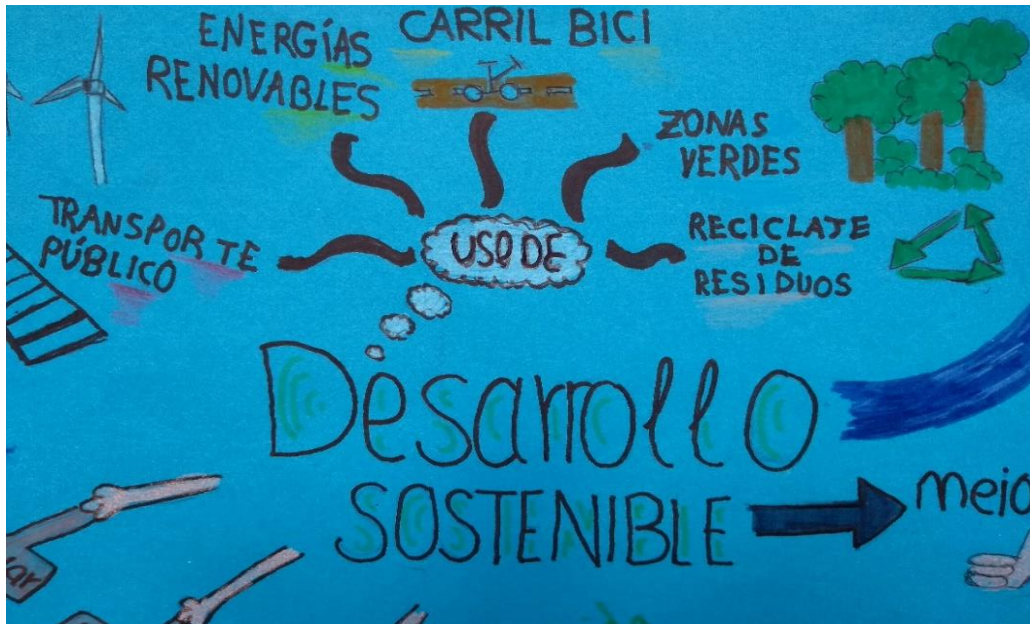 ENERGÍAS
RENOVABLES
CARRIL BICI
ZONAS
VERDES
TRANSPORTE
PÚBLICO
USO DE
RECICLATE
DE
RESIDUOS
Desarrollo
SOSTENIBLE